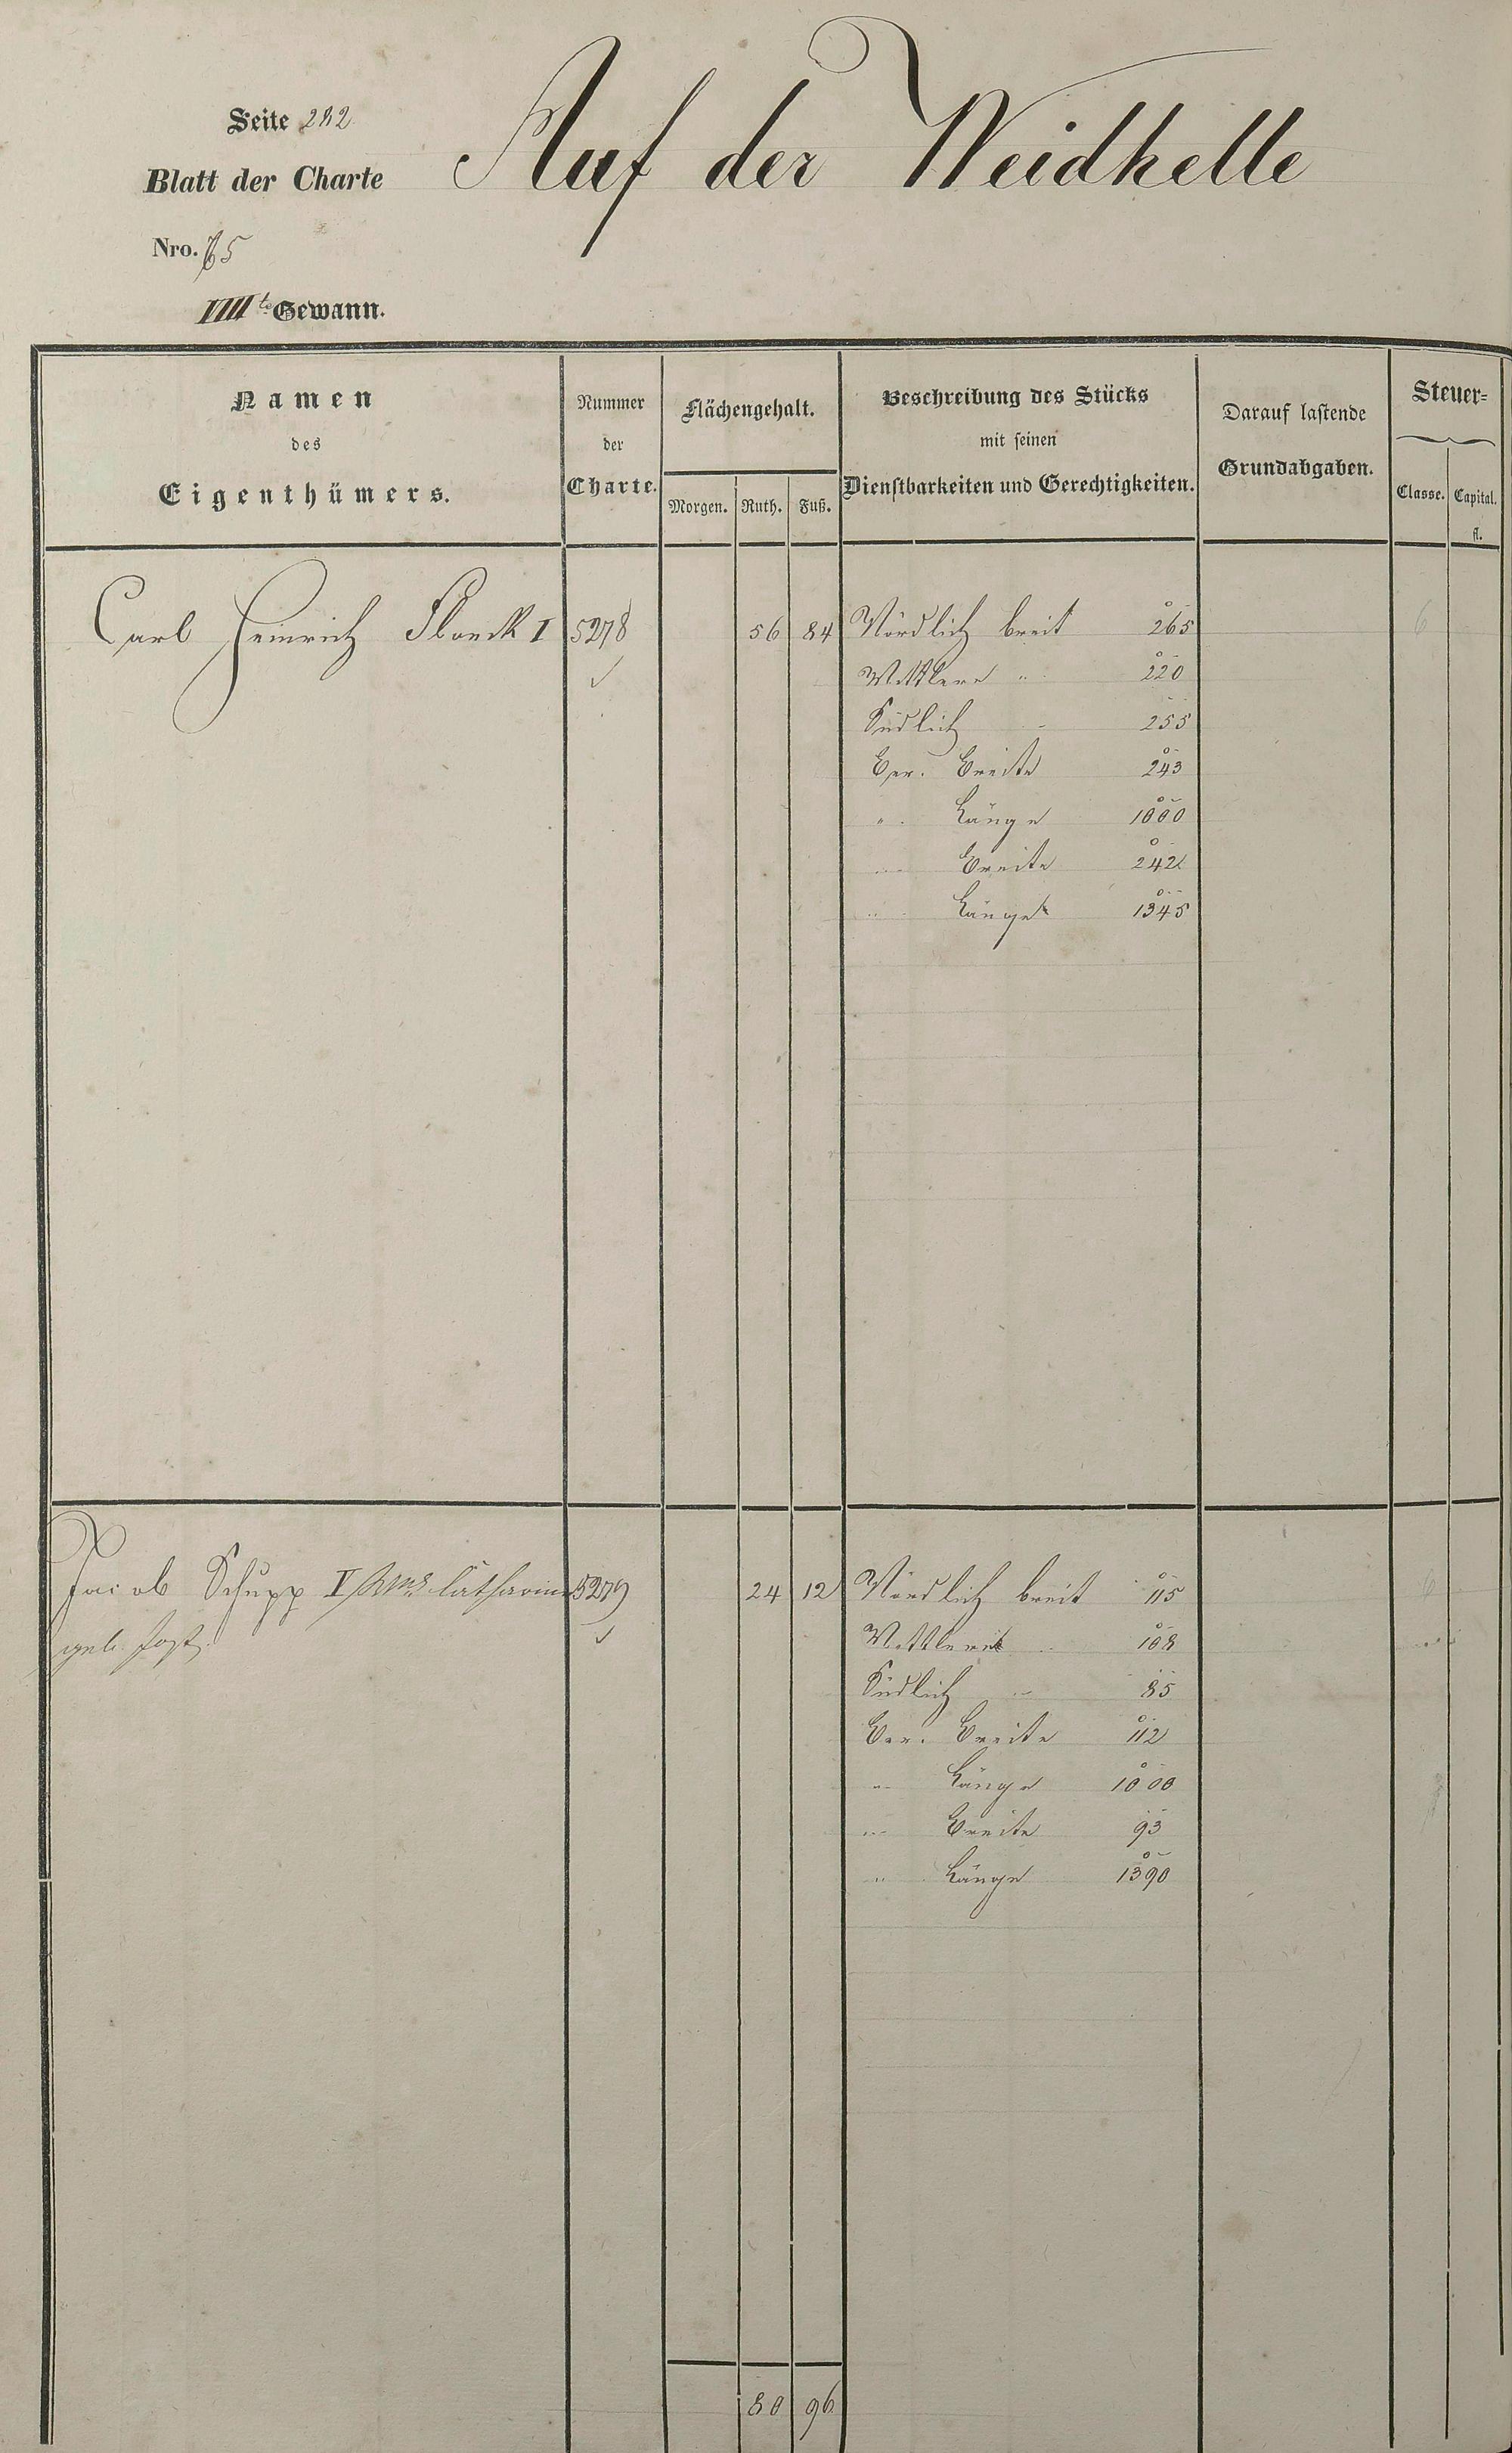 Seite 282
Auf der Weidhelle
Blatt der Charte
Nro. 65
IIII te Gewann.
Namen des Eigenthümers.
Nummer der Charte.
Flächengehalt.
Morgen. Ruth. Fuß.
Beschreibung des Stücks
mit seinen
Dienstbarkeiten und Gerechtigkeiten.
Darauf lastende
Grundabgaben.
Steuer=
Classe. Capital.
fl.
Carl Heinrich Flonck I 5278 56 84 Nördlich breit 265 6
Mittlere " 220
Südlich - 255
Ber. Breite 243
" Länge 1000
" Breite 242
" Länge 1345
Jacob Schupp II Catharine 5279 24 12 Nördlich breit 115 6
geb. Jost Mittlere 108
Südlich - 85
Ber. Breite 112
" Länge 1000
" Breite 93
" Länge 1390
80 96